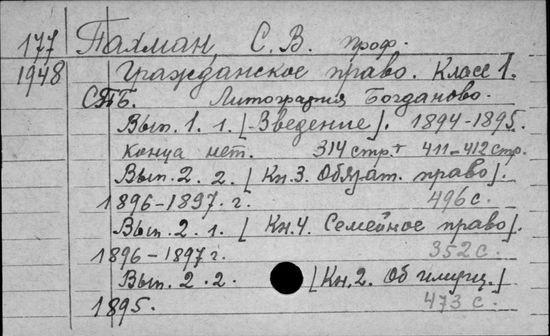 177 Пахман, С. В. проф.
1948 Гражданское право. Класс 1.
СПБ. Литография Богданово.
Вып. 1. 1. [Введение]. 1894-1895.
конца нет. 314 стр. + 411-412 стр.
Вып. 2. 2. [Кн. 3. Обязат. право].
1896-1897. г. 496 с.
Вып. 2. 1. [Кн. 4. Семейное право].
1896-1897 г. 352 с.
Вып. 2. 2. [Кн. 2. Об имущ.]
1895. 473 с.